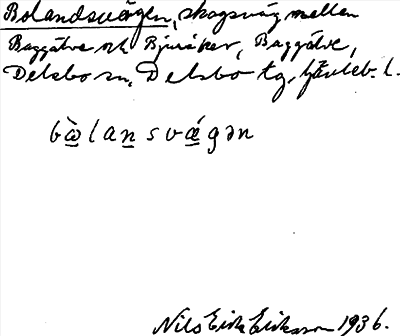 Bolandsvägen, skogsväg mellan
Baggätve och Bjuråker, Baggätve,
Delsbo sn, Delsbo tg, Gävleb. l.
bὼ̲lan̲svǽ̲gən
Nils Erik Eriksson 1936.